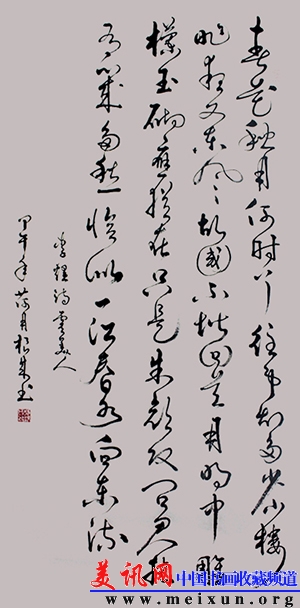 春花秋月何时了往事知多少小楼
昨夜又东风故国不堪回首月明中雕
栏玉砌应犹在只是朱颜改问君能
有几多愁恰似一江春水向东流
李煜诗虞美人
甲午年荷月根成书
美讯网 中国书画收藏频道
www.meixun.org